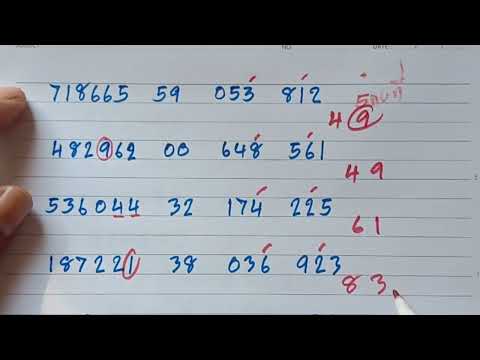 NO. DATE
718665 59 053 812
49
482962 00 648 561
49
536044 32 174 225
61
187221 38 036 923
83